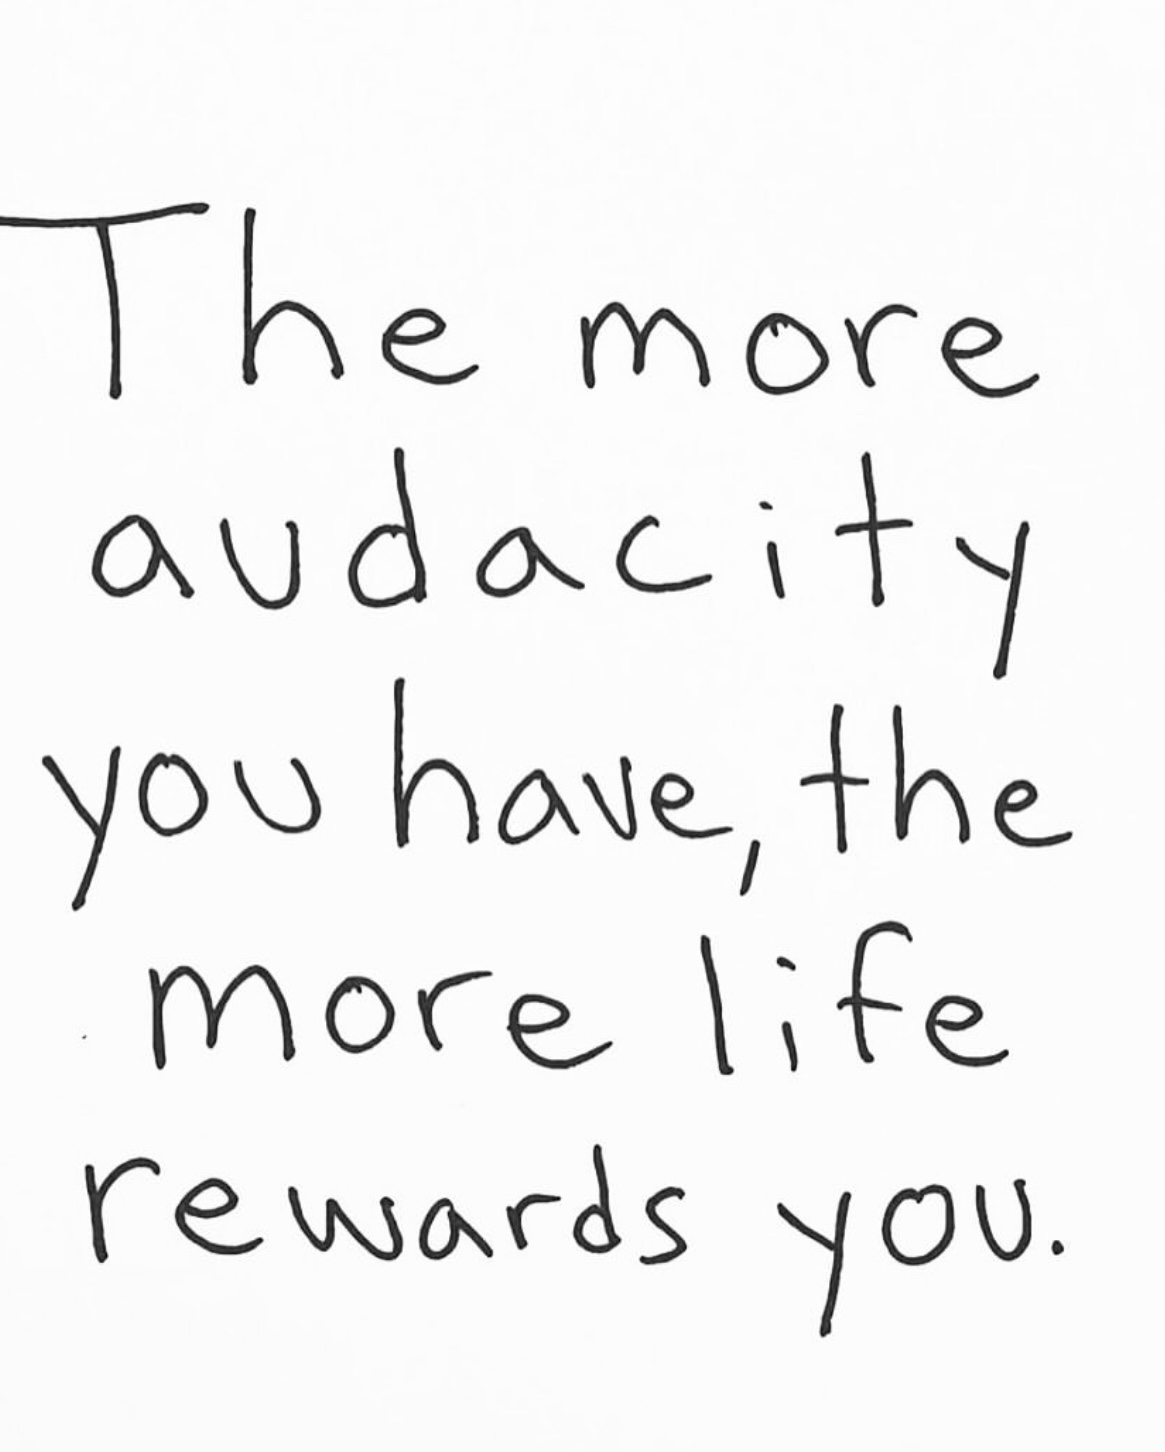 The more
audacity
you have, the
more life
rewards you.